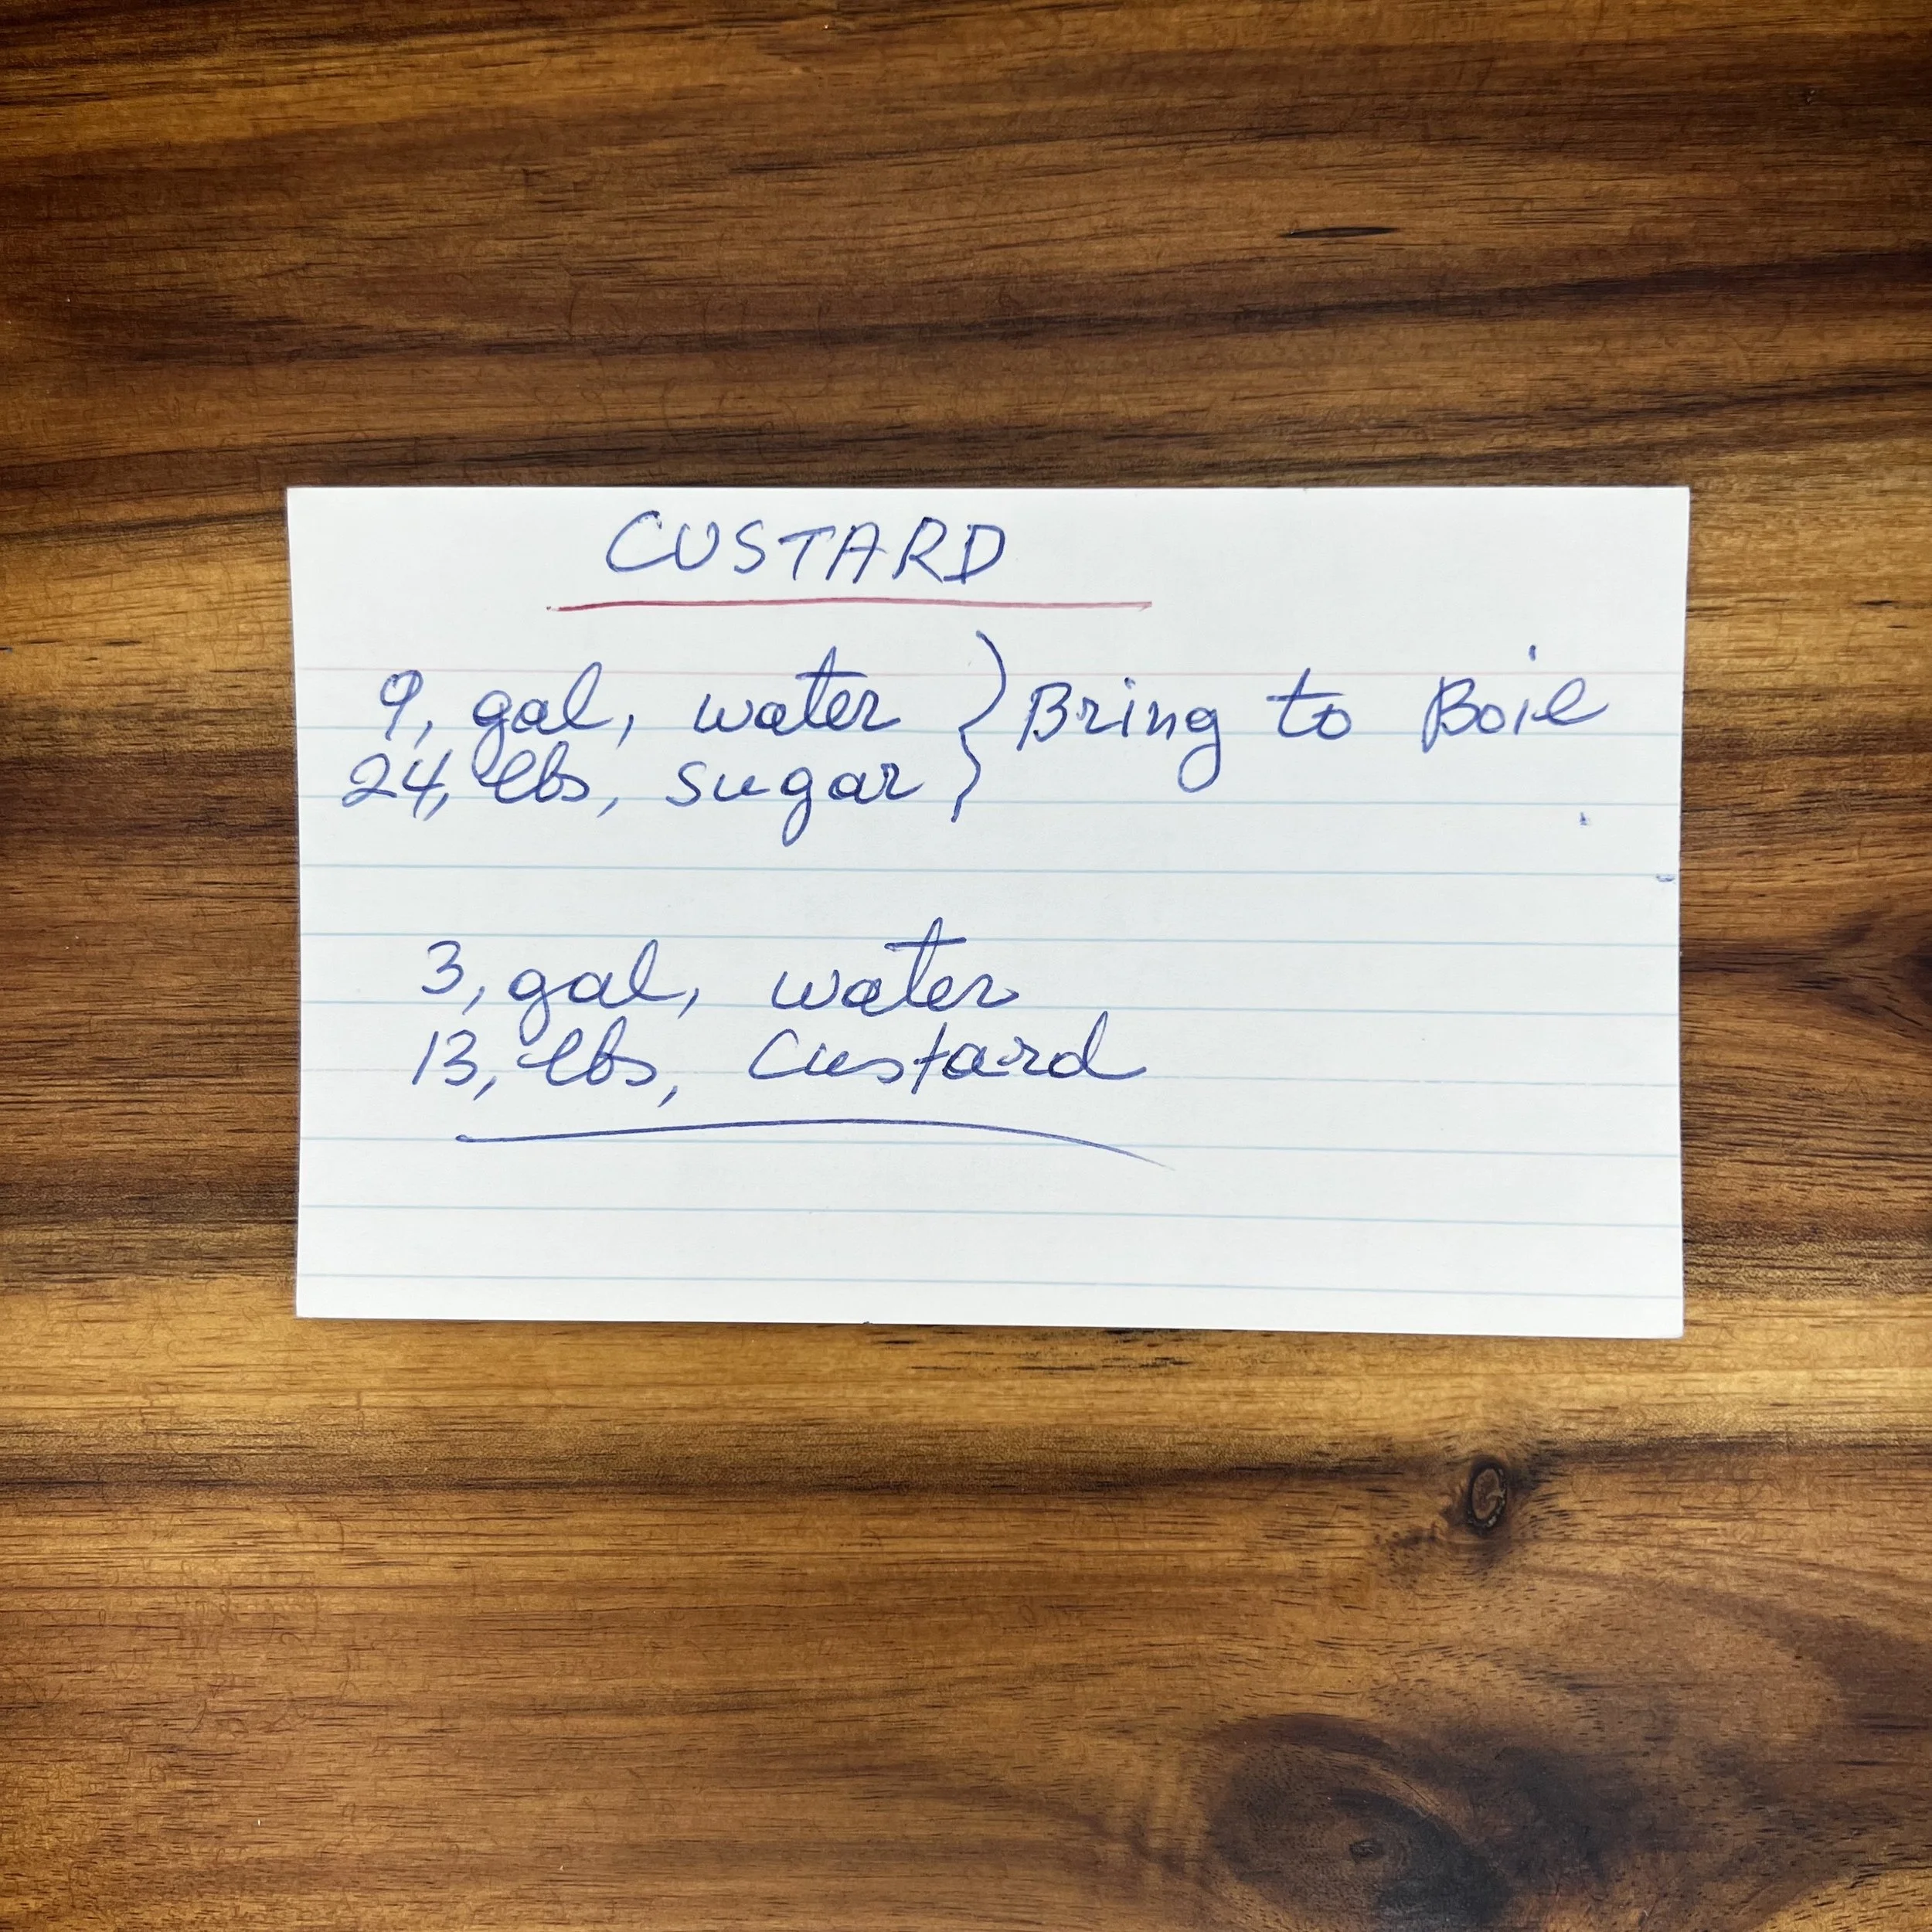 CUSTARD
9, gal, water } Bring to Boil
24, lbs, sugar
3, gal, water
13, lbs, Custard